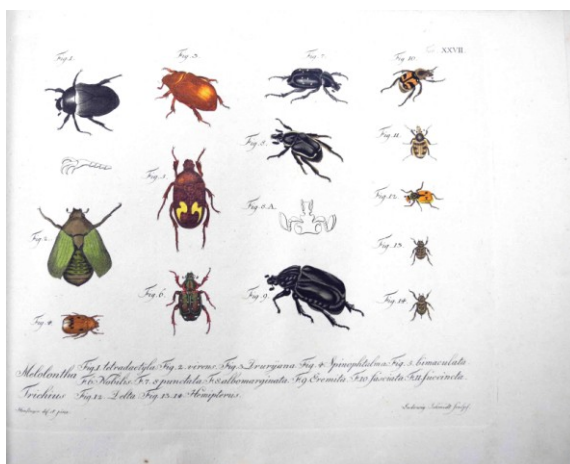 Tab. XXVII.
Fig. 1.
Fig. 3.
Fig. 7.
Fig. 10.
Fig. 11.
Fig. 8.
Fig. 5.
Fig. 12.
Fig. 8.A.
Fig. 2.
Fig. 13.
Fig. 6.
Fig. 9.
Fig. 14.
Fig. 4.
Melolontha Fig. 1. tetradactyla. Fig. 2. virens. Fig. 3. Druryana. Fig. 4. Spinophtalma. Fig. 5. bimaculata
F. 6. Nobilis. F. 7. 8 punctata. F. 8. albomarginata. F. 9. Eremita. F. 10. fasciata. F. 11. succincta.
Trichius Fig. 12. Delta. Fig. 13. 14. Hemipterus.
Ludewig Schmidt sculps.